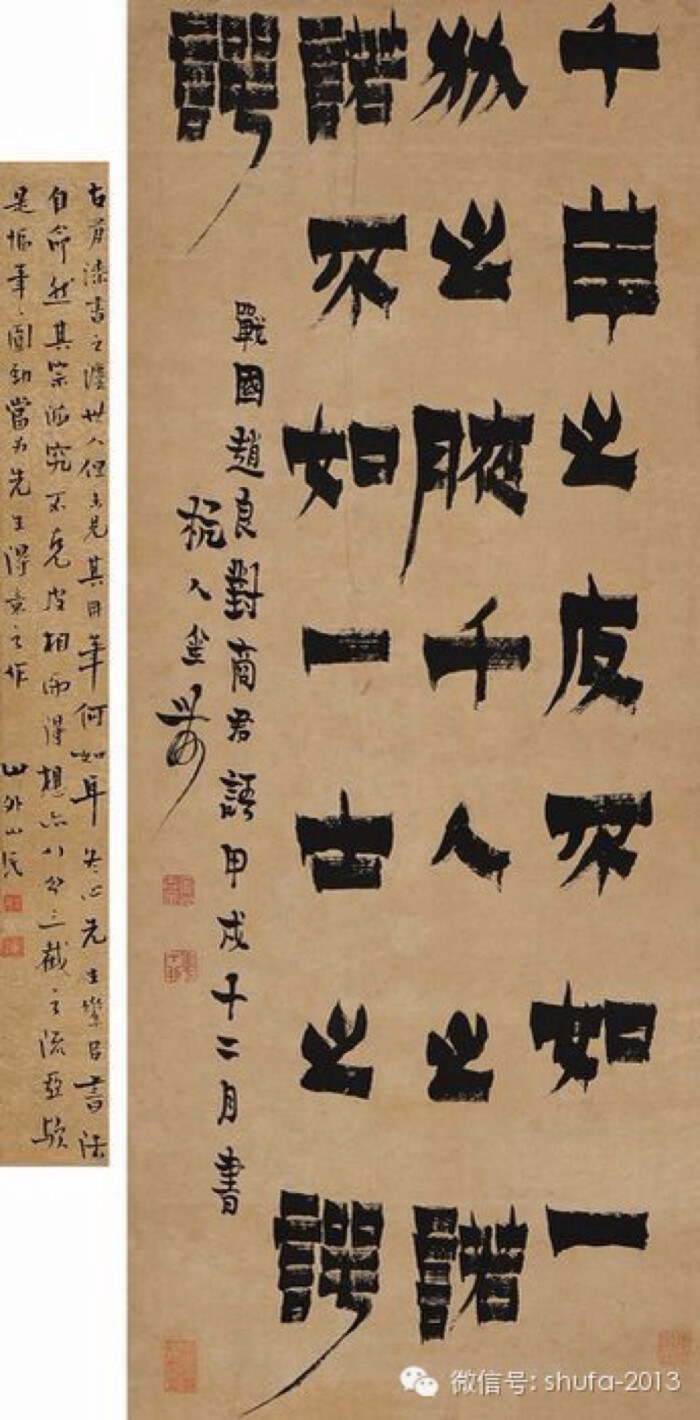 千羊之皮不如一
狐之腋千人之諾
諾不如一士之諤
諤
戰國趙良對商君語甲戌十二月書
杭人金農
古有漆書之世人但未見其用筆何如耳冬心先生書法
自命然其宗派究不免皮相而得想亦八分三截之流亞歟
是幅筆筆圓勁當為先生得意之作
山外山
微信号: shufa-2013